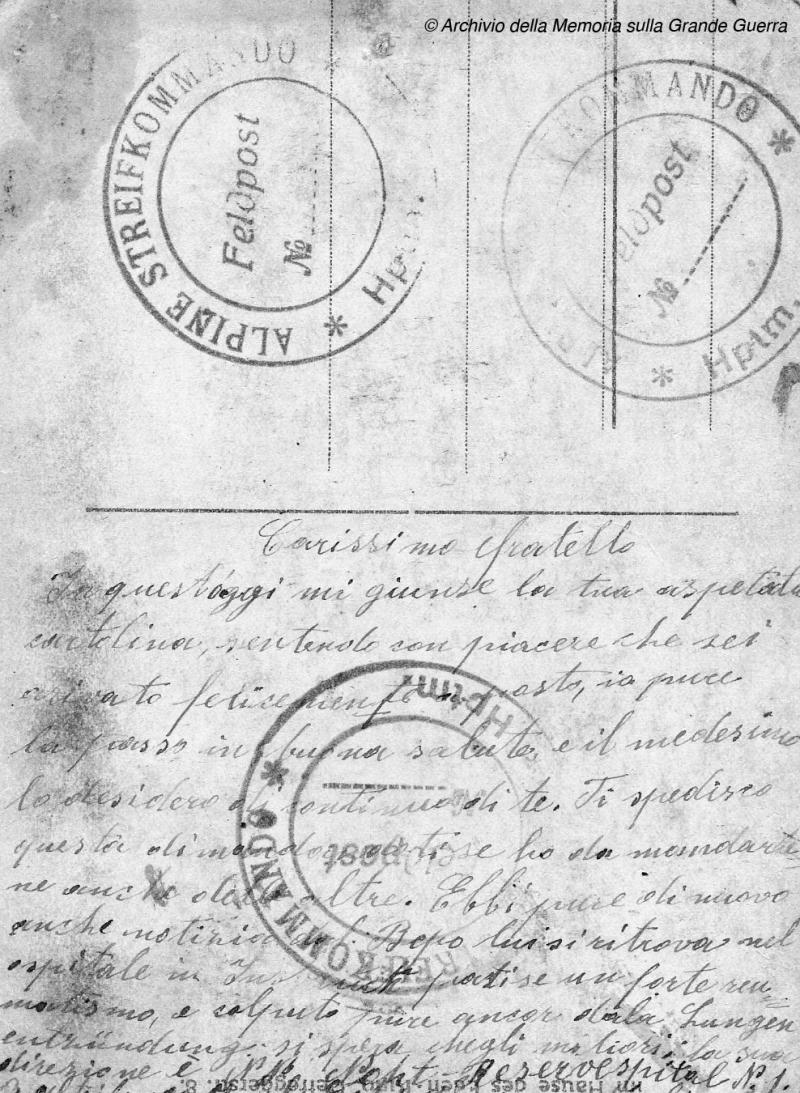 © Archivio della Memoria sulla Grande Guerra
ALPINE STREIFKOMMANDO * Hptm.
Feldpost
№
KOMMANDO * Hptm.
Feldpost
№
Carissimo fratello
In quest'oggi mi giunse la tua aspetata
cartolina, sentendo con piacere che sei
arivato felicemente posto, io pure
la passo in buona salute, e il medesimo
lo desidero di continuo di te. Ti spedisco
questa dimandandoti se ho da mandarte
ne anche delle altre. Ebbi pure di nuovo
anche notizia Bepo lui si ritrova nel
ospitale in patise un forte reu
matismo, e colputo pure ancor dala Lungen
entzündung, si spera megli la sua
direzione è Reservespital N. 1.
Hptm.
№
Feldpost
STREIFKOMMANDO *
im Hause des